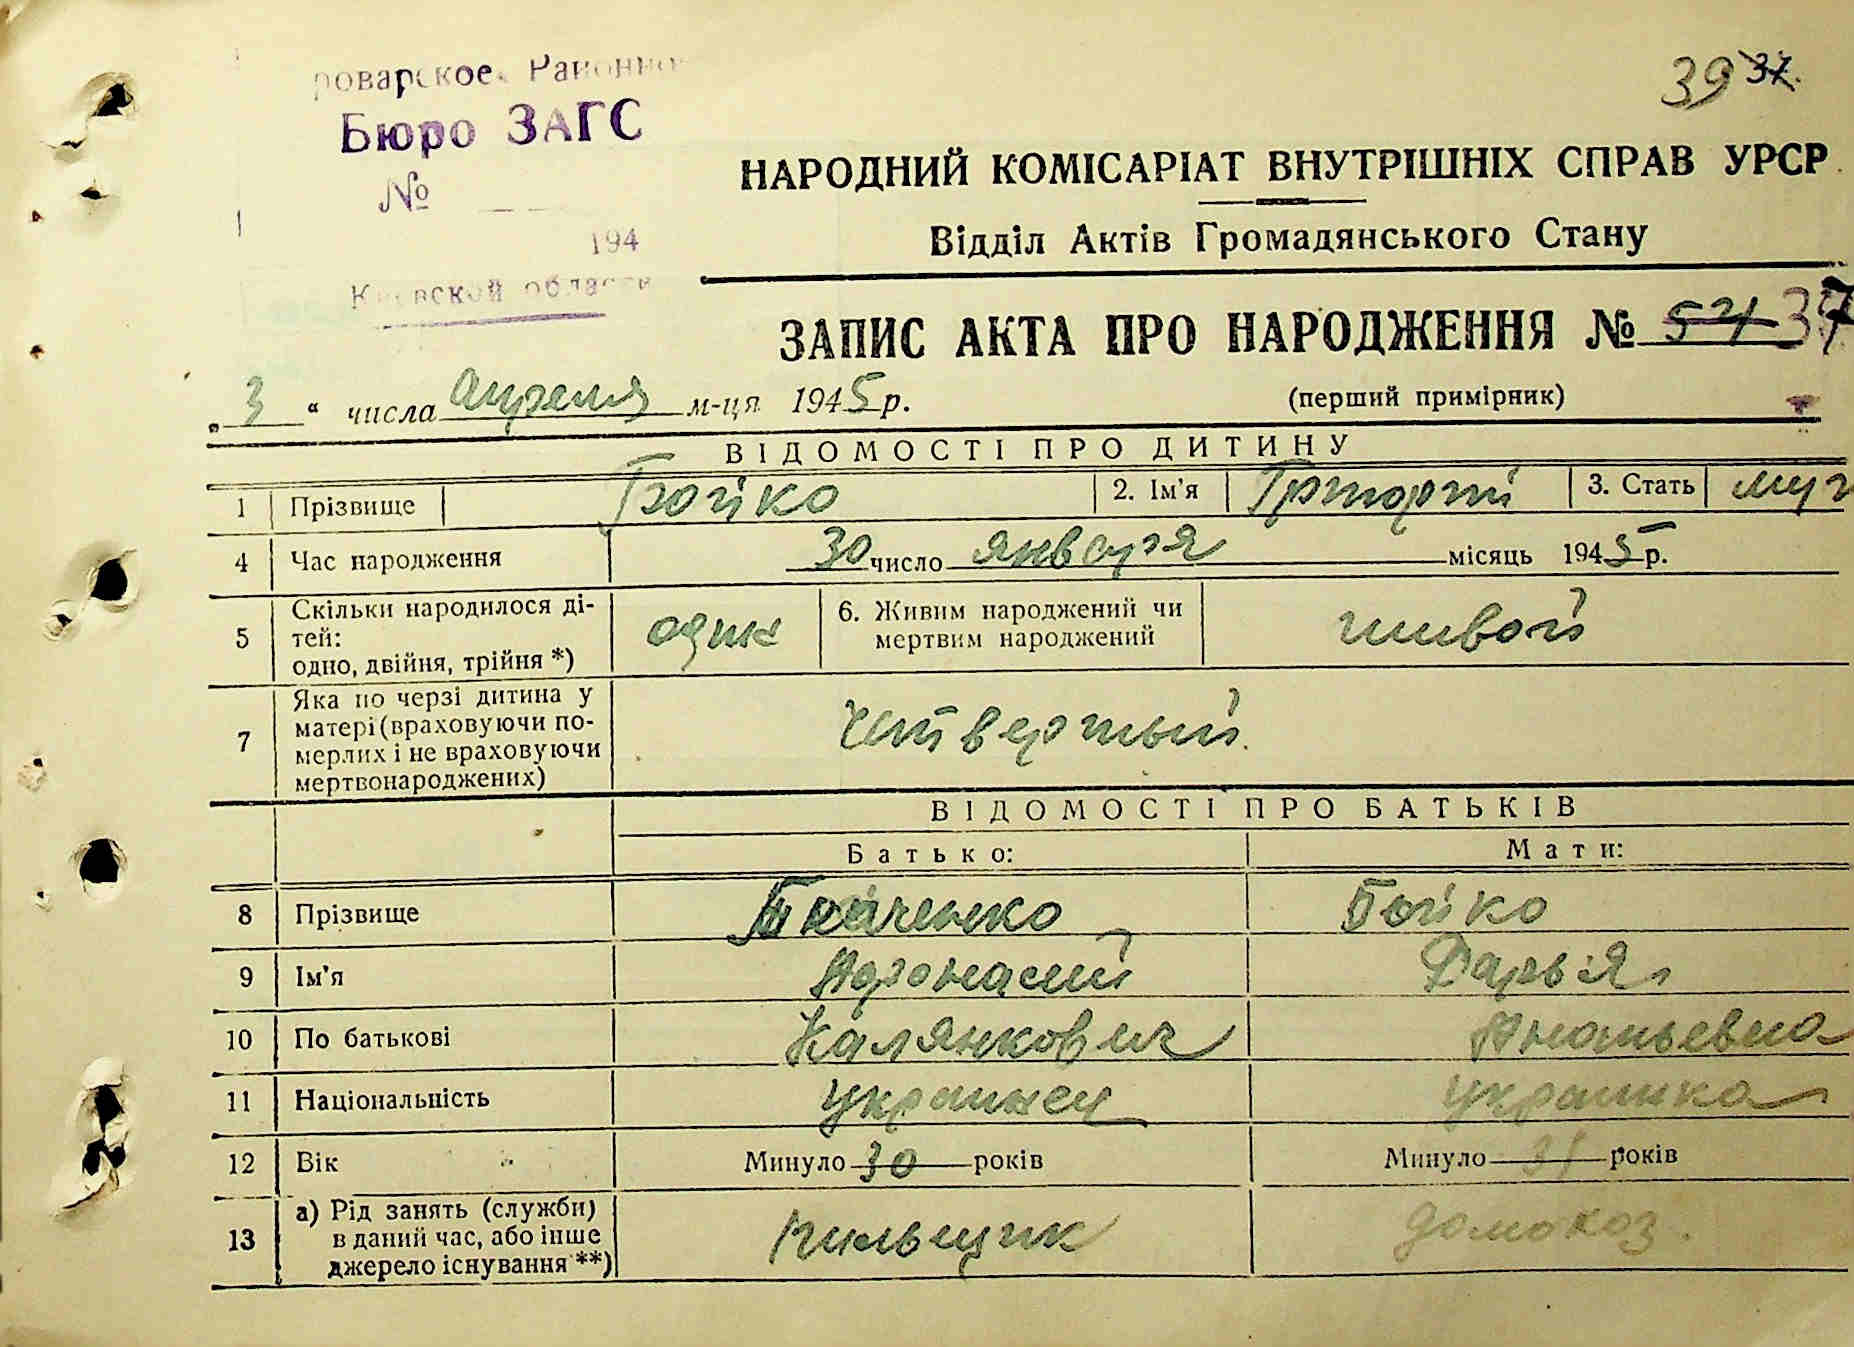 39 37.
роварское Районно
Бюро ЗАГС
№
194
Киевской области
НАРОДНИЙ КОМІСАРІАТ ВНУТРІШНІХ СПРАВ УРСР
Відділ Актів Громадянського Стану
ЗАПИС АКТА ПРО НАРОДЖЕННЯ № 37
„ 3 “ числа апреля м-ця 1945 р.
(перший примірник)
ВІДОМОСТІ ПРО ДИТИНУ
1 Прізвище Бойко 2. Ім’я Григорий 3. Стать муж
4 Час народження 30 число января місяць 1945 р.
5 Скільки народилося ді-
тей:
одно, двійня, трійня *) один
6. Живим народжений чи
мертвим народжений живой
7 Яка по черзі дитина у
матері (враховуючи по-
мерлих і не враховуючи
мертвонароджених) четвертый.
ВІДОМОСТІ ПРО БАТЬКІВ
Батько: Мати:
8 Прізвище Ткаченко Бойко
9 Ім’я Афонасий Дарья
10 По батькові Ананьевна
11 Національність украинец украинка
12 Вік Минуло 30 років Минуло 31 років
13 а) Рід занять (служби)
в даний час, або інше
джерело існування **) Пильщик домохоз.